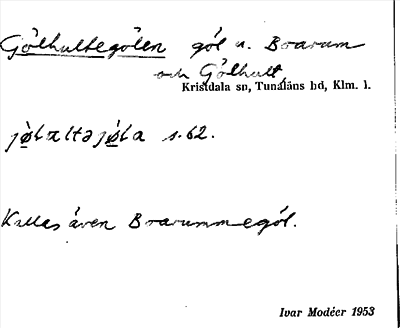 Gölhultegölen göl n. Bro­arum
och Gölhult,
Kristdala sn, Tunaläns hd, Klm. l.
s. 62.
Kallas även Broarummegöl.
Ivar Modéer 1953